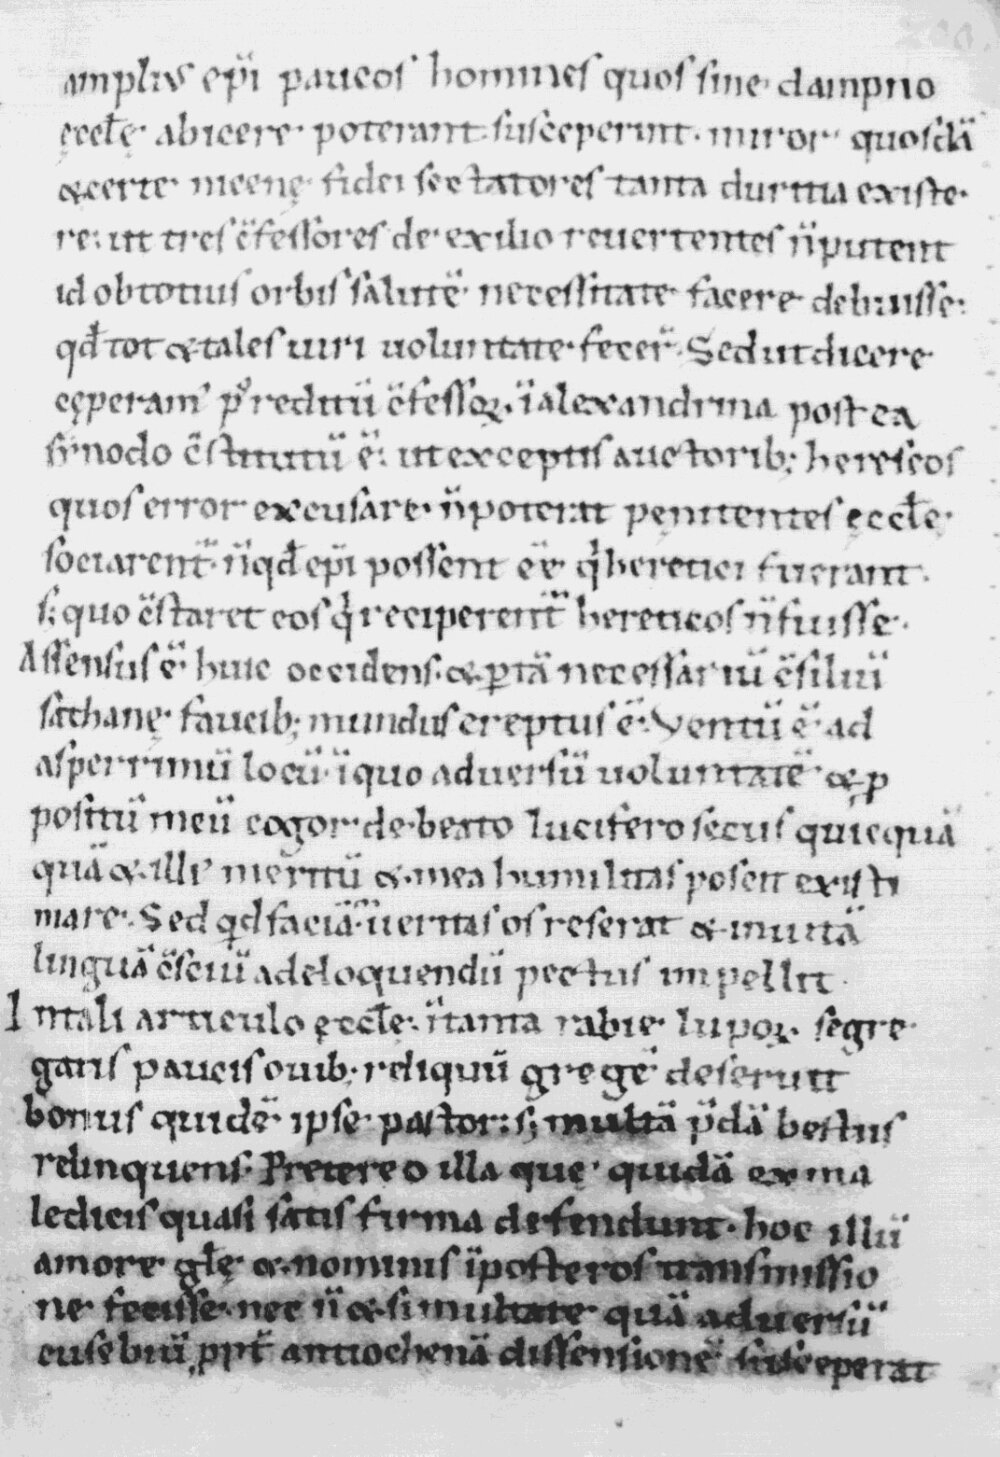 amplius epi̅ paucos homines quos sine dampno
ęccłę abicere poterant susceperunt. miror quosdā
&certe nicene̜ fidei sectatores tanta duritia existe
re: ut tres c̅fessores de exilio reuertentes n̅ putent
id ob totius orbis salutē necessitate facere debuisse:
qđ tot & tales uiri uoluntate fecer̅. Sed ut dicere
cęperam' p⁹ reditū c̅fessoꝝ. ī alexandrina postea
synodo c̅stitutū ē: ut exceptis auctorib; hereseos
quos error excusare n̅ poterat penitentes ęccłę
sociarent̅. n̅ qđ epi̅ possent ēē qͥ heretici fuerant.
s; quo c̅staret eos qͥ reciperent̅ hereticos n̅ fuisse.
Assensus ē huic occidens. & ꝑ tā necessariū c̅siliū
sathanę faucib; mundus ereptus ē. Ventū ē ad
asperrimū locū ī quo aduersū uoluntatē & ꝓ
positū meū cogor de beato lucifero secus quicquā
quā & illi' meritū & mea humilitas poscit existi
mare. Sed qͥd faciā? ueritas os reserat & inuitā
linguā c̅sciū ad eloquendū pectus impellit.
In tali articulo ęccłę. ī tanta rabie lupoꝝ. segre
gatis paucis ouib; reliquū gregē deseruit
bonus quidē ipse pastor: s; multā p̅dā bestiis
relinquens. Pretereo illa quę quidā ex ma
ledicis quasi satis firma defendunt. hoc illū
amore głę & nominis ī posteros transmissio
ne fecisse. nec n̅ & simultate quā aduersū
eusebiū ꝓpt̅ antiochenā dissensionē susceperat